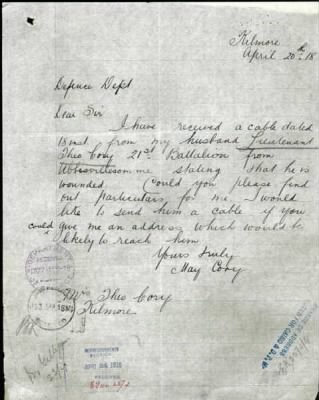 Kilmore
April 20th 18
Defence Dept
Dear Sir
I have received a cable dated
18 inst. from my husband Lieutenant
Theo Cory 21st Battalion from
Abbevillesomme stating that he is
wounded. Could you please find
out particulars for me I would
like to send him a cable if you
could give me an address which would be
likely to reach him
Yours truly
May Cory
Mrs Theo Cory
Kilmore